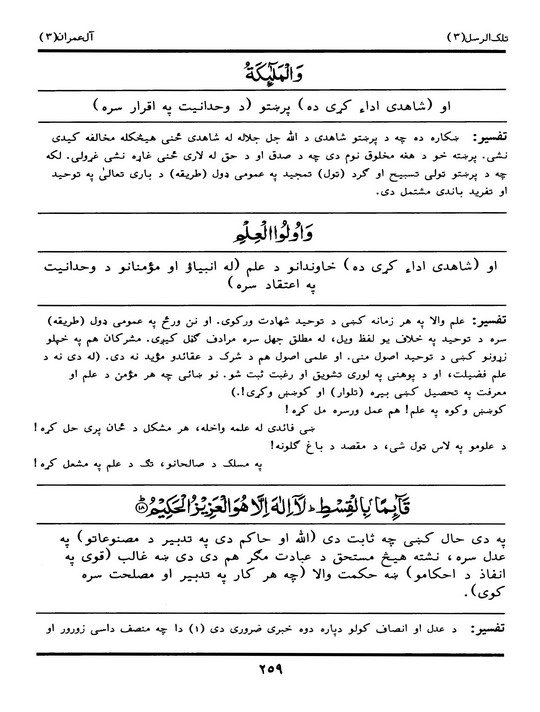 تلک الرسل(۳) آل عمران(۳)
وَالْمَلٰٓئِكَةُ
او (شاهدی اداء کړی ده) پرښتو (د وحدانیت په اقرار سره)
تفسیر: ښکاره ده چه د پرښتو شاهدی د الله جل جلاله له شاهدی څنی هیڅکله مخالفه کیدی
نشی. پرښته خو د هغه مخلوق نوم دی چه د صدق او د حق له لاری څنی غاړه نشی غړولی. لکه
چه د پرښتو تولی تسبیح او گرد (تول) تمجید په عمومی ډول (طریقه) د باری تعالیٰ په توحید
او تفرید باندی مشتمل دی.
وَاُولُوا الْعِلْمِ
او (شاهدی اداء کړی ده) خاوندانو د علم (له انبیاؤ او مؤمنانو د وحدانیت
په اعتقاد سره)
تفسیر: علم والا په هر زمانه کښی د توحید شهادت ورکوی. او نن ورځ په عمومی ډول (طریقه)
سره د توحید په خلاف یو لفظ ویل، له مطلق جهل سره مرادف گڼل کیږی. مشرکان هم په خپلو
زړونو کښی د توحید اصول منی. او علمی اصول هم د شرک د عقائدو مؤید نه دی. (له دی نه د
علم فضیلت، او د پوهنی په لوری تشویق او رغبت ثبت شو. نو ښائی چه هر مؤمن د علم او
معرفت په تحصیل کښی بیړه (تلوار) او کوښښ وکړی!.)
کوښښ وکوه په علم! هم عمل ورسره مل کره!
ښی فائدی له علمه واخله، هر مشکل د ځان پری حل کره!
د علومو په لاس تول شی، د مقصد د باغ گلونه!
په مسلک د صالحانو، تګ د علم په مشعل کره!
قَآئِمًۢا بِالْقِسْطِ ؕ لَآ اِلٰهَ اِلَّا هُوَ الْعَزِيْزُ الْحَكِيْمُ ۱۸ؕ
په دی حال کښی چه ثابت دی (الله او حاکم دی په تدبیر د مصنوعاتو) په
عدل سره، نشته هیڅ مستحق د عبادت مگر هم دی دی ښه غالب (قوی په
انفاذ د احکامو) ښه حکمت والا (چه هر کار په تدبیر او مصلحت سره
کوی).
تفسیر: د عدل او انصاف کولو دپاره دوه خبری ضروری دی (۱) دا چه منصف داسی زورور او
۲۵۹